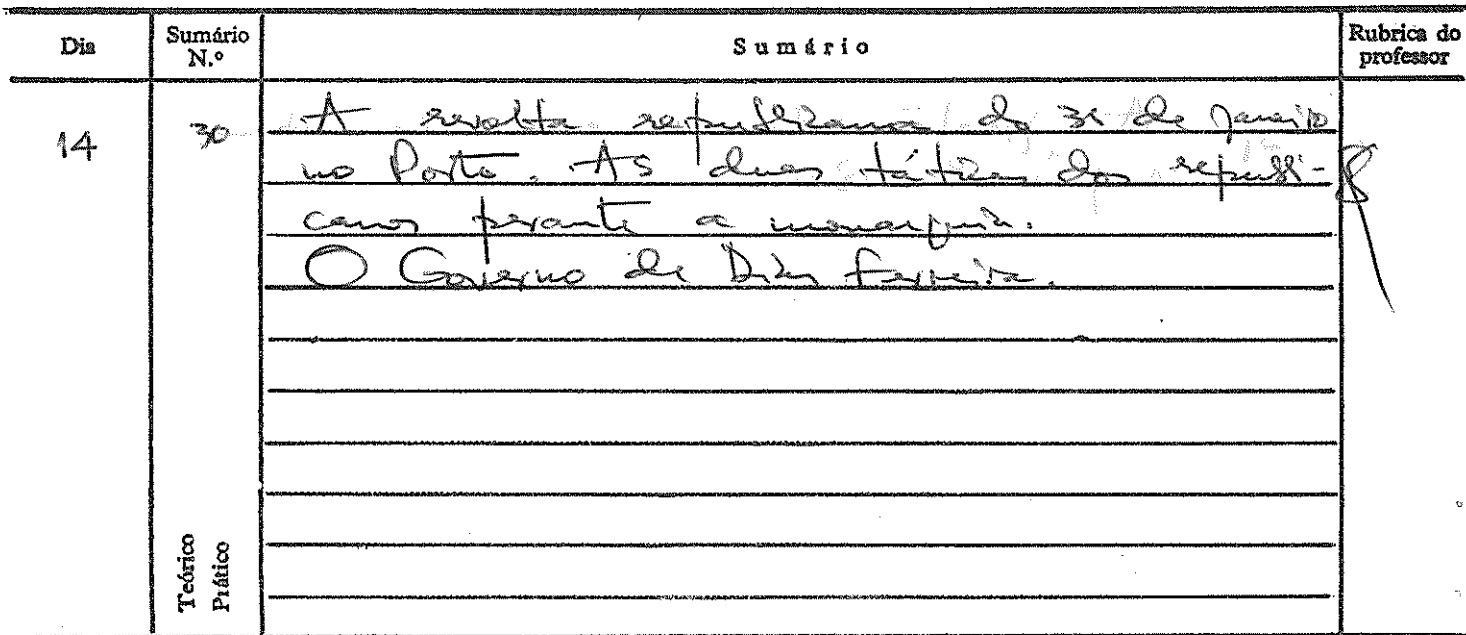 Dia
Sumário N.º
Sumário
Rubrica do professor
14
30
A revolta republicana do 31 de Janeiro
no Porto. As duas táticas dos republi-
canos perante a monarquia.
O Governo de Dias Ferreira.
Teórico
Prático